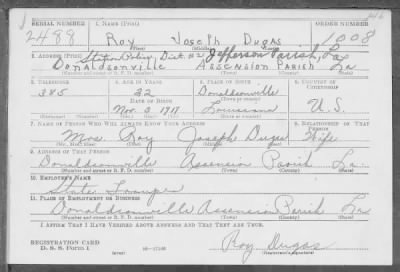 SERIAL NUMBER 1. NAME (Print) ORDER NUMBER
2489 Roy Joseph Dugas 1008
(First) (Middle) (Last)
2. ADDRESS (Print)
State Police, Dist. No 2 Jefferson Parish, La
Donaldsonville Ascension Parish La
(Number and street or R. F. D. number) (Town) (County) (State)
3. TELEPHONE 4. AGE IN YEARS 5. PLACE OF BIRTH 6. COUNTRY OF CITIZENSHIP
345 22 Donaldsonville
DATE OF BIRTH (Town or county)
Nov. 3 1917 Louisiana U.S.
(Mo.) (Day) (Yr.) (State or country)
7. NAME OF PERSON WHO WILL ALWAYS KNOW YOUR ADDRESS 8. RELATIONSHIP OF THAT PERSON
Mrs. Roy Joseph Dugas Wife
(Mr., Mrs., Miss) (First) (Middle) (Last)
9. ADDRESS OF THAT PERSON
Donaldsonville Ascension Parish La.
(Number and street or R. F. D. number) (Town) (County) (State)
10. EMPLOYER'S NAME
State Trooper
11. PLACE OF EMPLOYMENT OR BUSINESS
Donaldsonville Ascension Parish La
(Number and street or R. F. D. number) (Town) (County) (State)
I AFFIRM THAT I HAVE VERIFIED ABOVE ANSWERS AND THAT THEY ARE TRUE.
REGISTRATION CARD
D. S. S. Form 1 (over) 16-17105
Roy Dugas
(Registrant's signature)